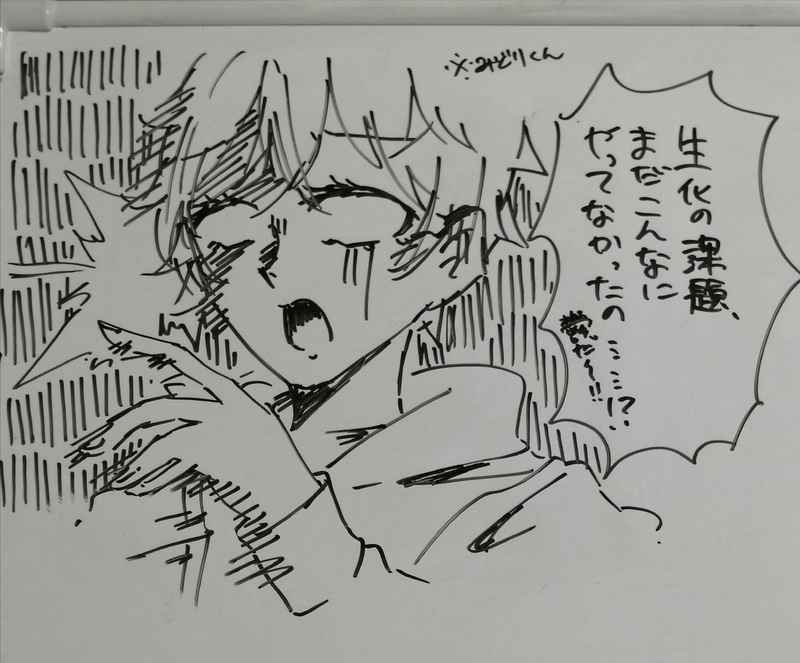 ※みどりくん
生化の課題、
まだこんなに
やってなかったの……!?